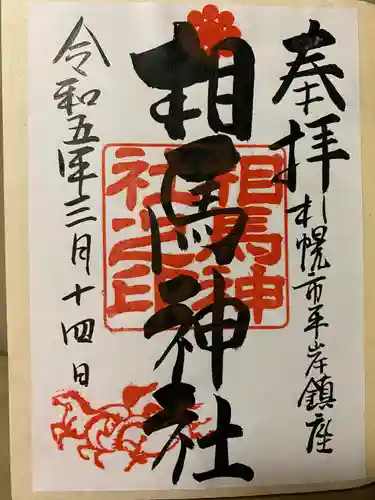 奉拝
札幌市平岸鎮座
相馬神社
相馬神社之印
令和五年三月十四日